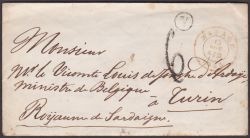 Monsieur
Mr le Vicomte Louis de
ministre de Belgique
à Turin
Royaume de Sardaigne
6